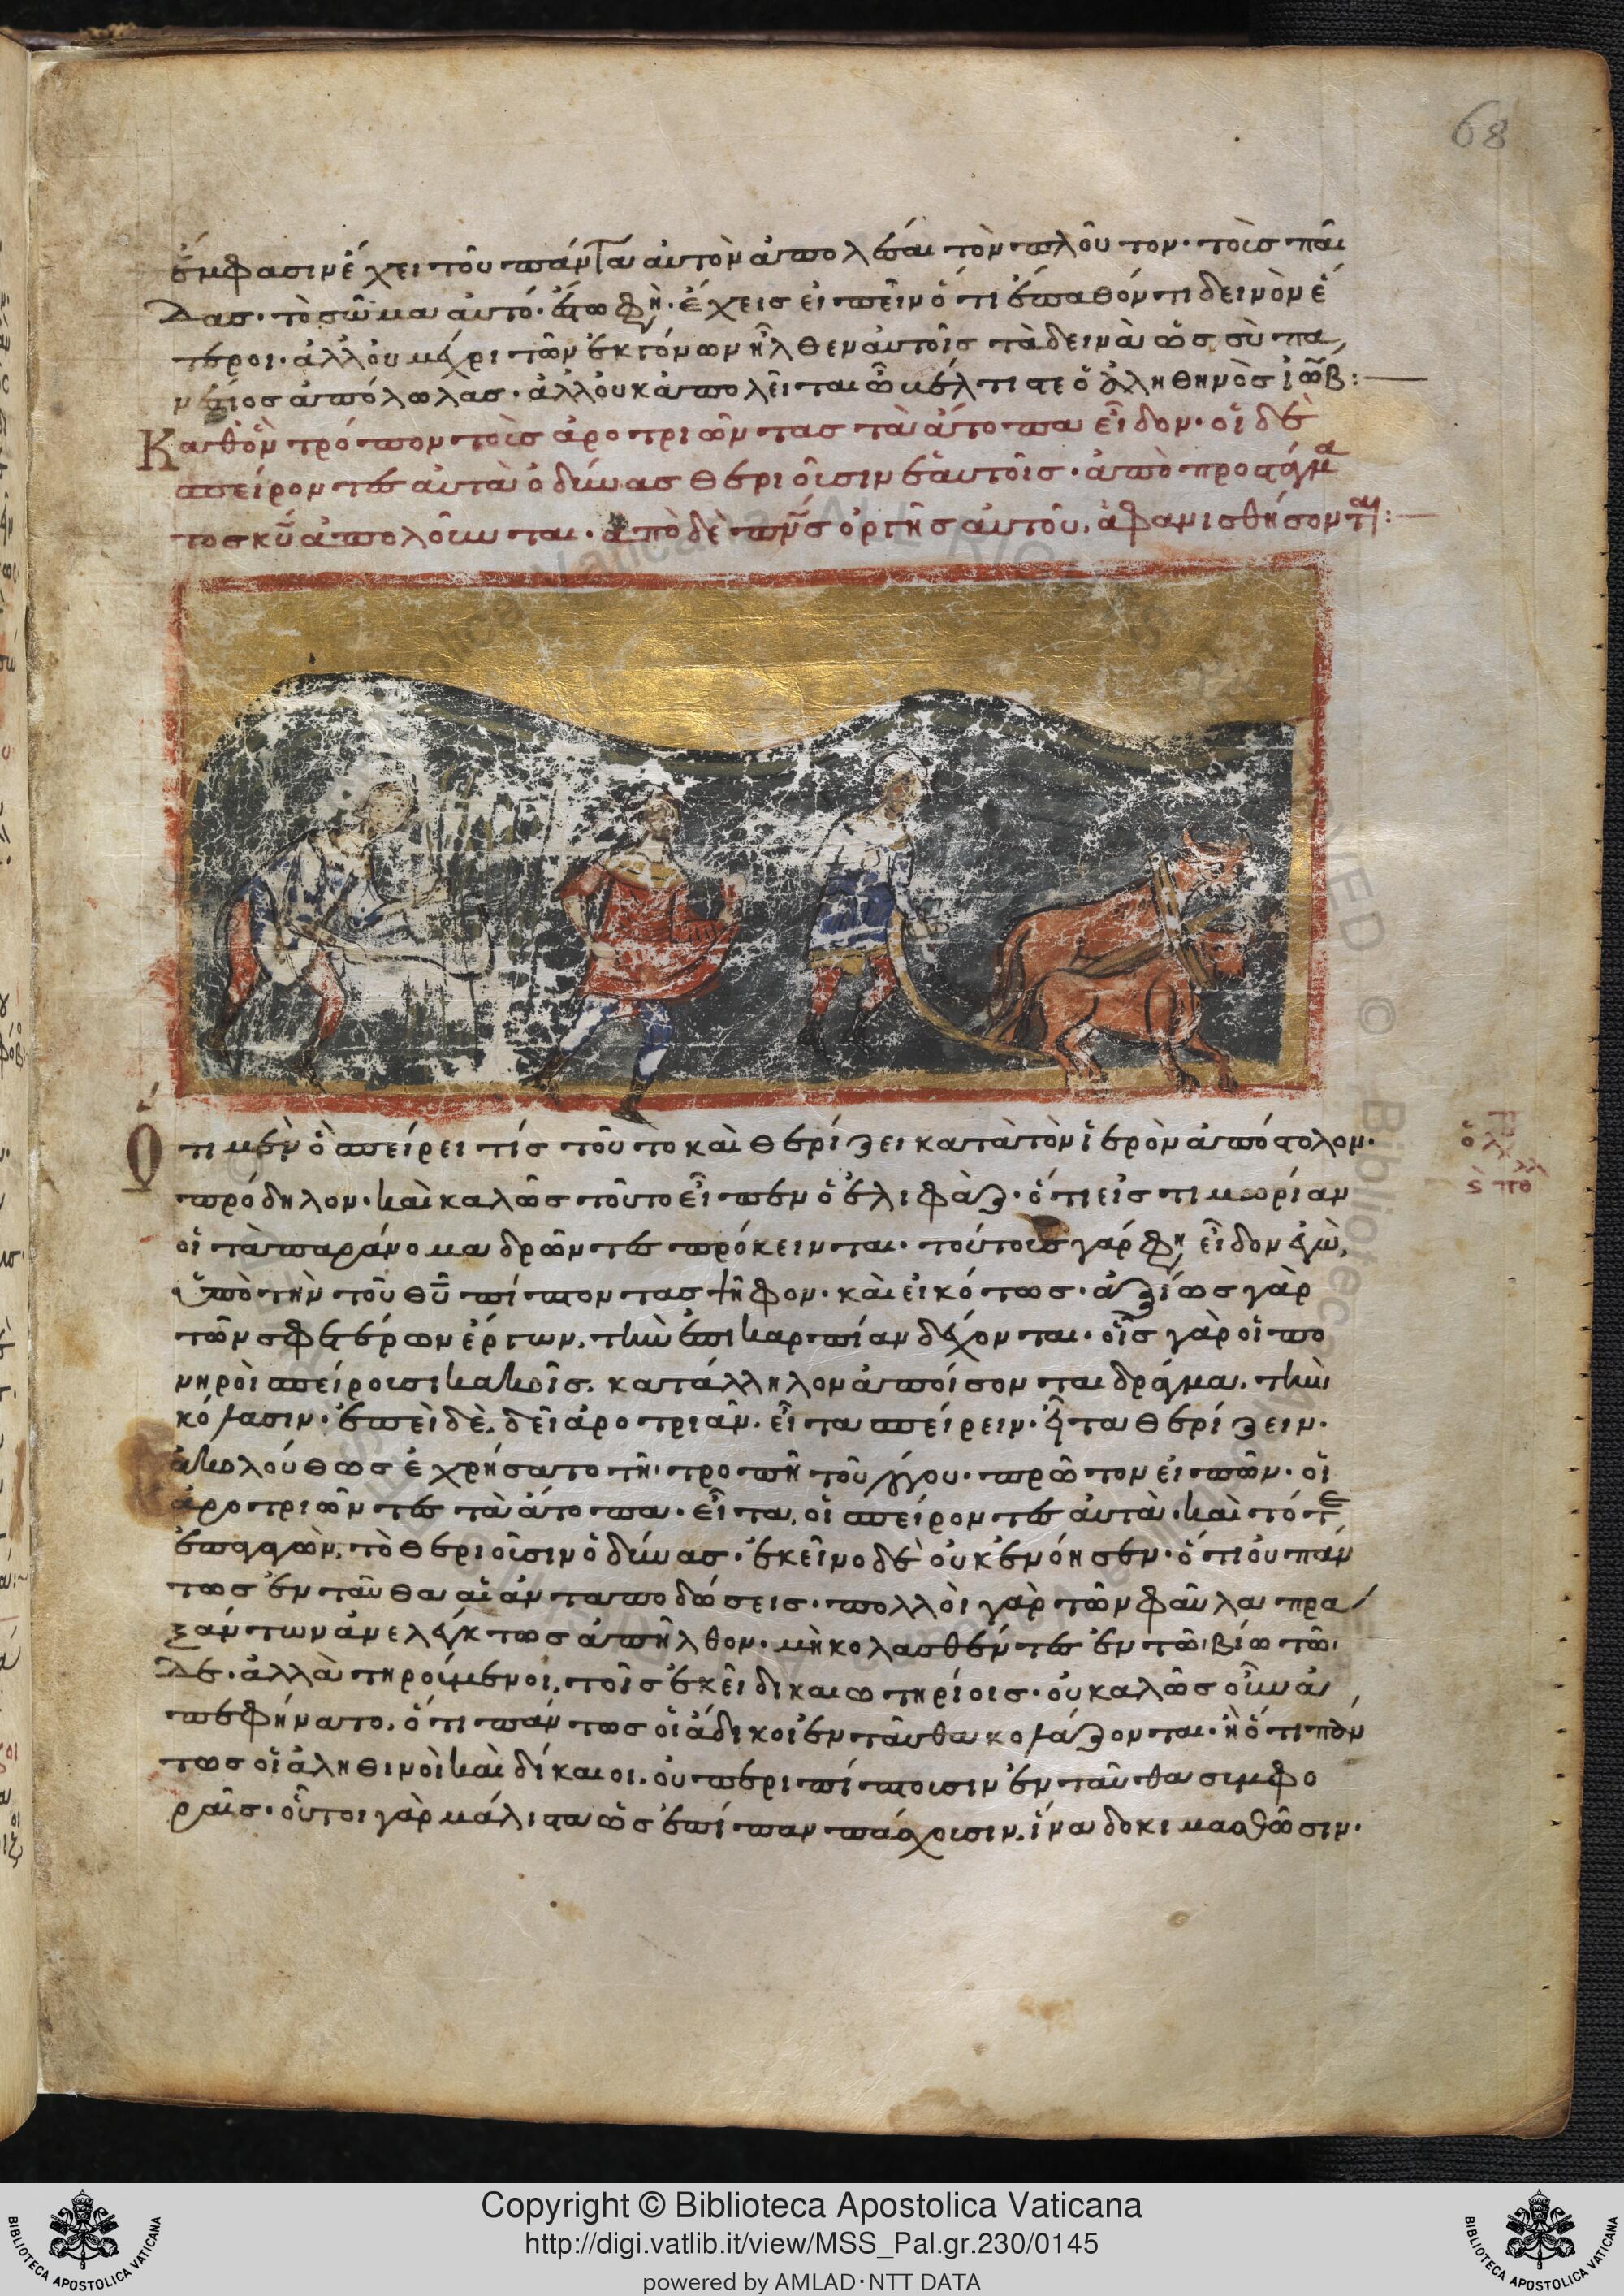 68
ἔμφασιν ἔχει τοῦ πάντα αὐτὸν ἀπολέσαι τὸν πλοῦτον· τοὺς παῖ
δας· τὸ σῶμα αὐτό· ἔχεις εἰπεῖν ὅτι
τεροι· ἀλλ' οὐ μέχρι τῶν ἐκγόνων ἦλθεν αὐτοῖς τὰ δεινὰ ὡς σὺ πα
νάπολωλας· ἀλλ' οὐκ ἀπολεῖται ὁ ἀληθηνὸς ἰὼβ:
Καθ' ὃν τρόπον τοὺς ἀροτριῶντας τὰ ἄτοπα εἶδον· οἱ δὲ
σπείροντες αὐτὰ ὀδύνας θεριοῦσιν ἑαυτοῖς· ἀπὸ προστάγμα
τος κυ ἀπολοῦνται· ἀπὸ δὲ πνς ὀργῆς αὐτοῦ, ἀφανισθήσονται:
Ὅτι μὲν ὃ σπείρει τίς τοῦτο καὶ θερίζει κατὰ τὸν ἱερὸν ἀπόστολον·
πρόδηλον· καὶ καλῶς τοῦτο εἶπεν ὁ ἐλιφάζ· ὅτι εἰς τιμωρίαν
οἱ τὰ παράνομα δρῶντες πρόκεινται· τούτους γάρ φη εἶδον ἐγὼ,
ὑπὸ τὴν τοῦ θυ πίπτοντας ψῆφον· καὶ εἰκότως· ἀξίως γὰρ
τῶν σφετέρων ἔργων, τὴν ἐπικαρπίαν δέχονται· οἷς γὰρ οἱ πο
νηροὶ σπείρουσι κακοῖς· κατάλληλον ἀποίσονται δράγμα, τὴν
κόλασιν· ἐπεὶ δὲ, δεῖ ἀροτριᾶν· εἶτα σπείρειν· εἶτα θερίζειν·
ἀκολούθως ἐχρήσατο τῇ τροπῇ τοῦ λόγου· πρῶτον εἰπὼν· οἱ
ἀροτριῶντες τὰ ἄτοπα· εἶτα, οἱ σπείροντες αὐτὰ· καὶ τότε
ἐπαγαγὼν, τὸ θεριοῦσιν ὀδύνας· ἐκεῖνο δὲ οὐκ ἐνόησεν· ὅτι οὐ πάν
τως ἐνταῦθα αἱ ἀνταποδόσεις· πολλοὶ γὰρ τῶν φαῦλα πρα
ξάντων ἀνελέγκτως ἀπῆλθον· μὴ κολασθέντες ἐν τῷ βίῳ τῷ
δε· ἀλλὰ τηρούμενοι, τοῖς ἐκεῖ δικαιωτηρίοις· οὐ καλῶς οὖν ἀ
πεφήνατο, ὅτι πάντως οἱ ἄδικοι ἐνταῦθα κολάζονται· ἢ ὅτι πάν
τως οἱ ἀληθινοὶ καὶ δίκαιοι, οὐ περιπίπτουσιν ἐνταῦθα συμφο
ραῖς· οὗτοι γὰρ μάλιστα ὡς ἐπίπαν πάσχουσιν, ἵνα δοκιμασθῶσιν·
Copyright © Biblioteca Apostolica Vaticana
http://digi.vatlib.it/view/MSS_Pal.gr.230/0145
powered by AMLAD·NTT DATA
BIBLIOTECA APOSTOLICA VATICANA
BIBLIOTECA APOSTOLICA VATICANA